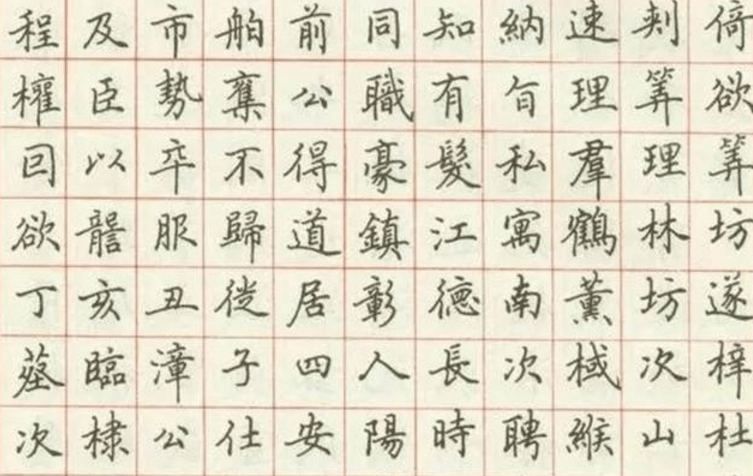 程及市舶前同知納速剌倚
權臣勢棄公職有旨理筭欲
回以卒不得豪髮私羣理筭
欲讋服歸道鎮江寓鶴林坊
丁亥丑徙居彰德南薰坊遂
葬臨漳子四人長次棫次梓
次棣公仕安陽時聘緱山杜